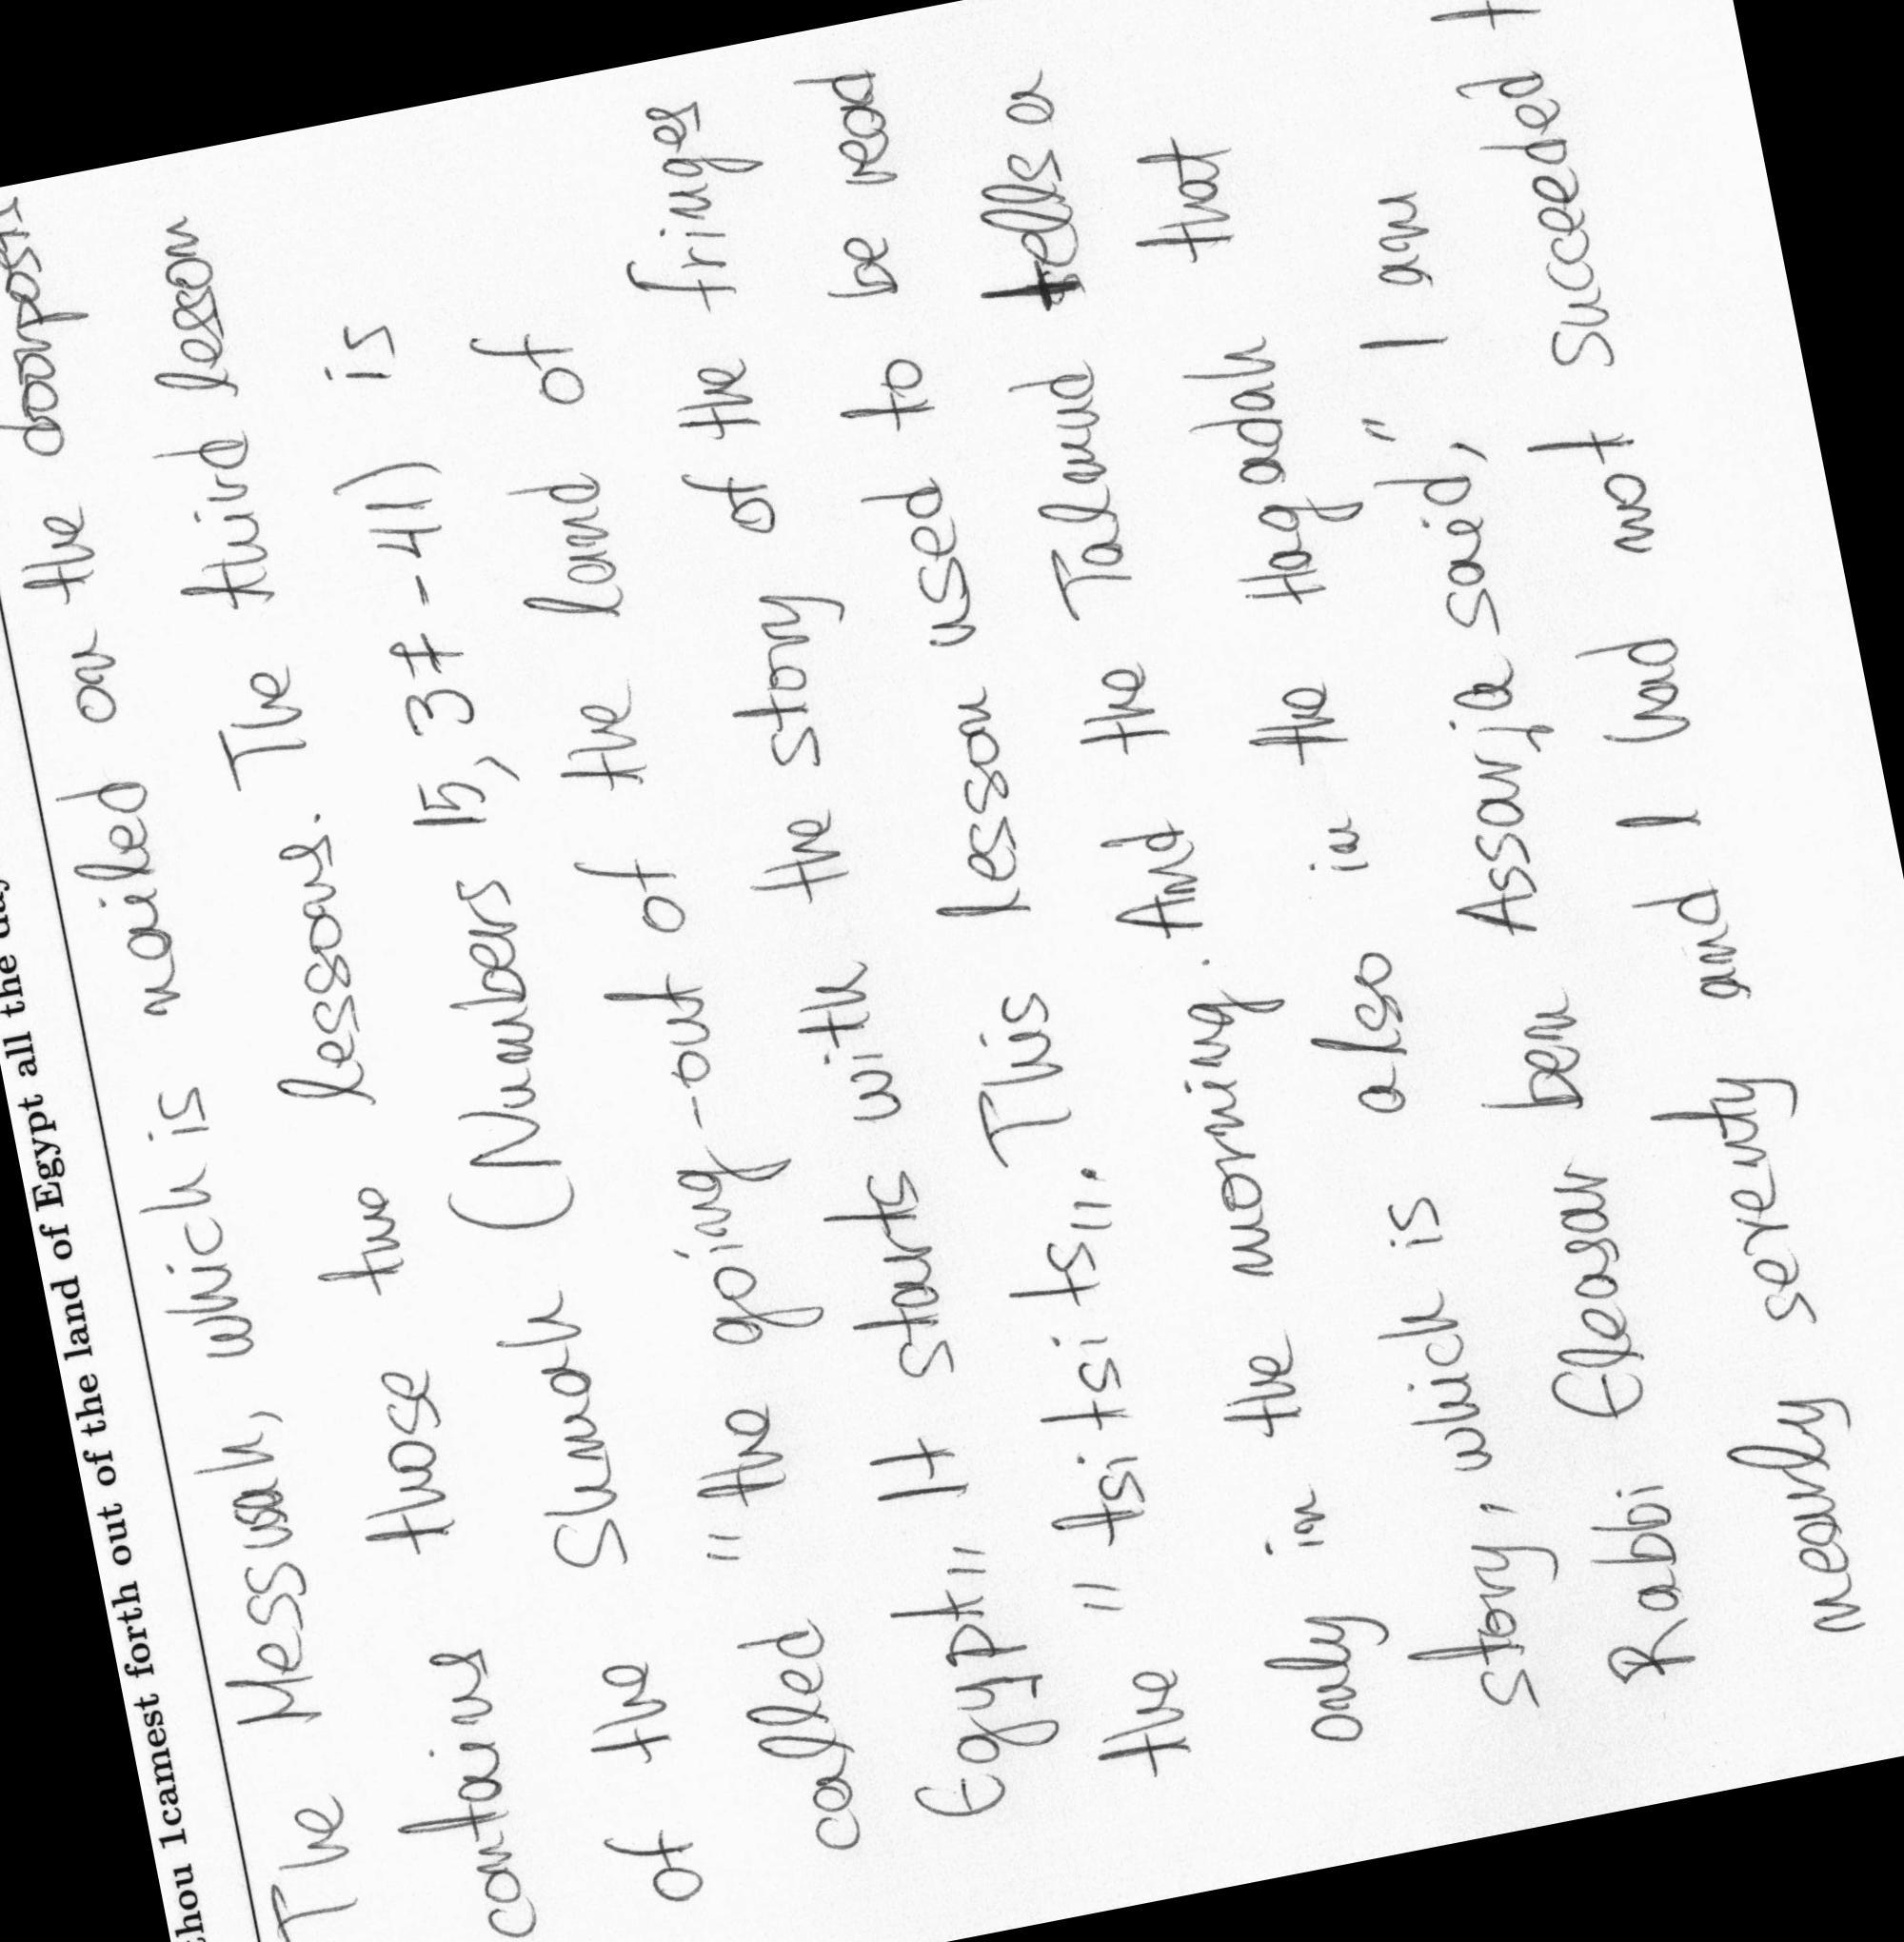 thou 1camest forth out of the land of Egypt all the day
The Messusah, which is nailed on the doorposts
contains those two lessons. The third lesson
of the Shmah (Numbers 15, 37-41) is
called "the going-out of the land of
Egypt" It starts with the story of the fringes
the "tsitsits". This lesson used to be read
only in the morning. And the Talmud tells a
story, which is also in the Hagadah that
Rabbi Eleasar ben Assarja said, "I am
nearly seventy and I had not succeeded